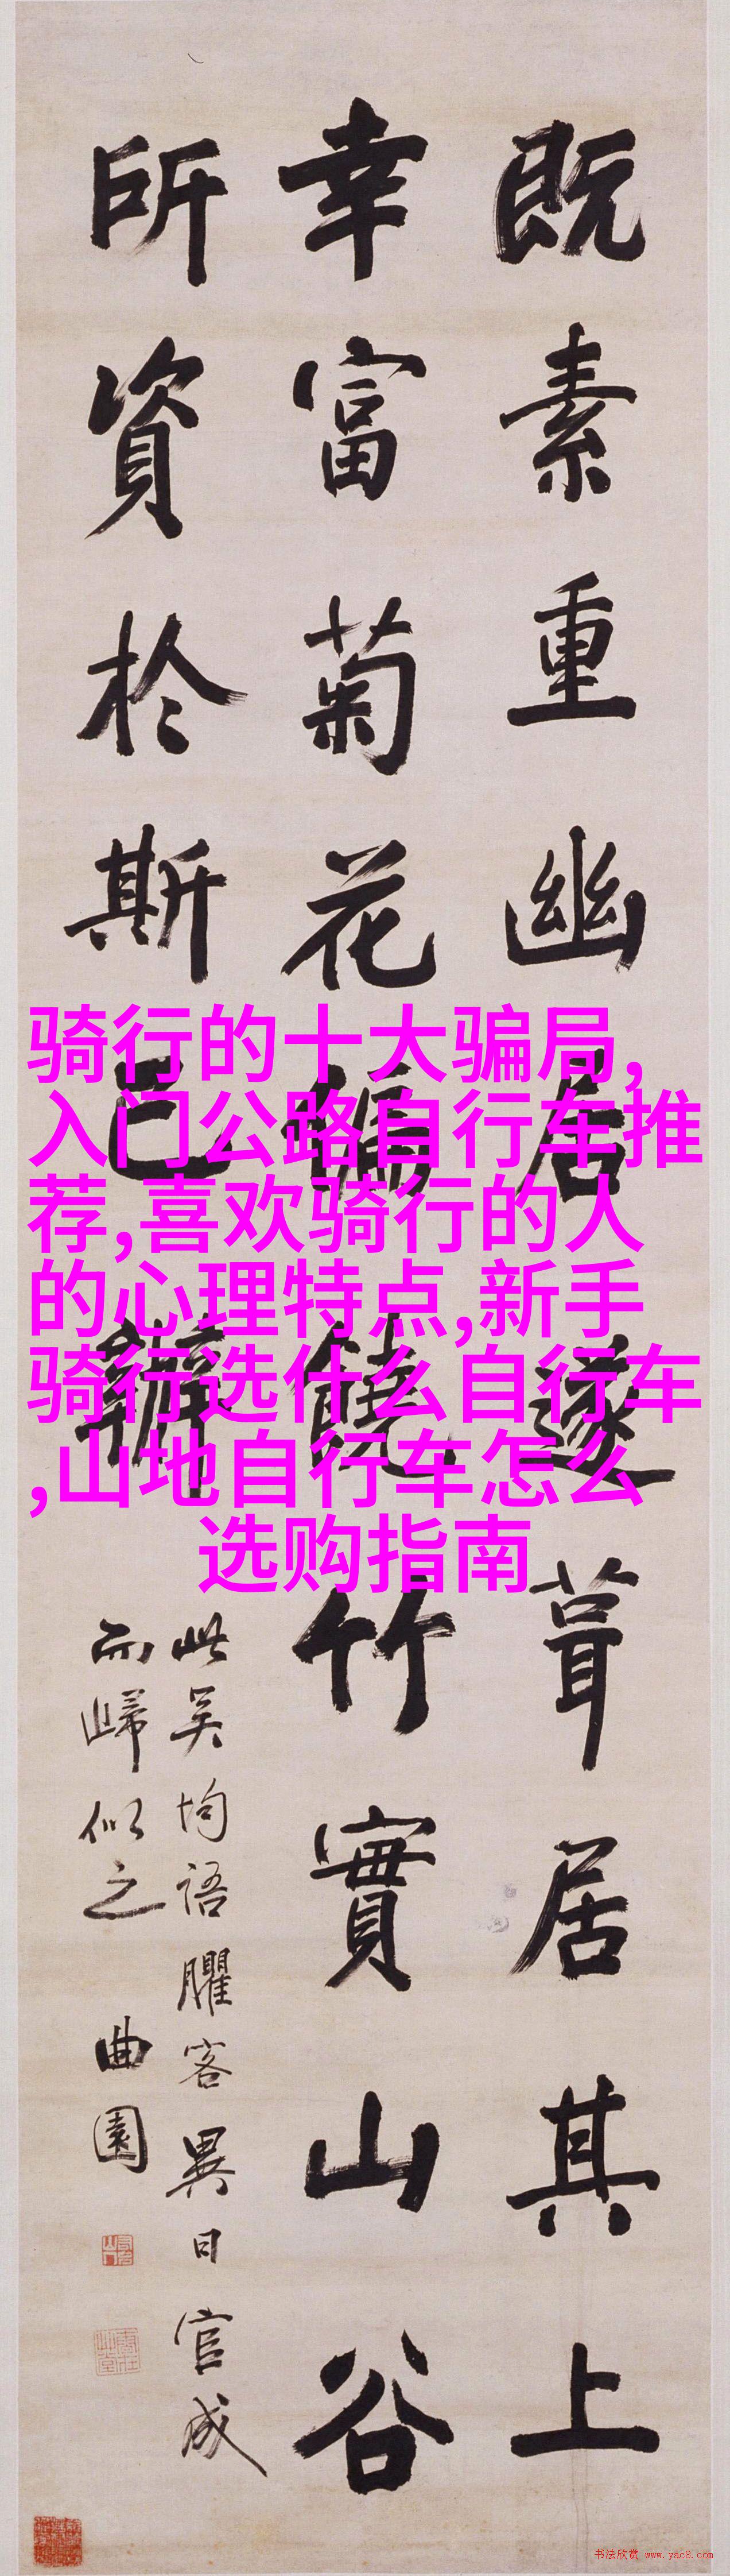 既素重幽居遂葺居其上
幸富菊花偏饒竹實山谷
所資於斯已辦
此吴均語臞客異日官成
而歸似之 曲園
骑行的十大骗局,
入门公路自行车推
荐,喜欢骑行的人
的心理特点,新手
骑行选什么自行车
,山地自行车怎么
选购指南
书法欣赏 www.yac8.com